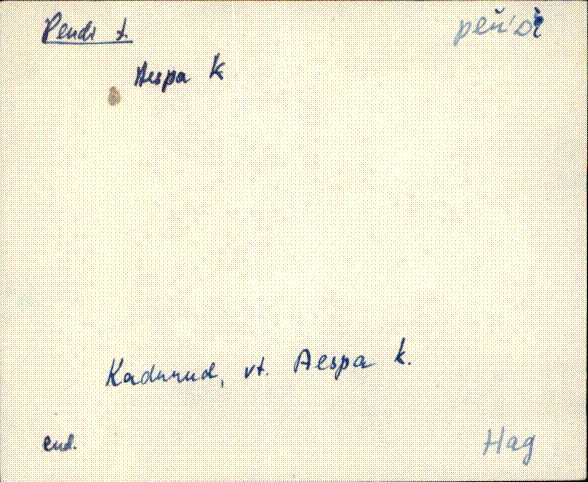 Pendi t. peń'di
Aespa k
Kadunud, vt. Aespa k.
end. Hag